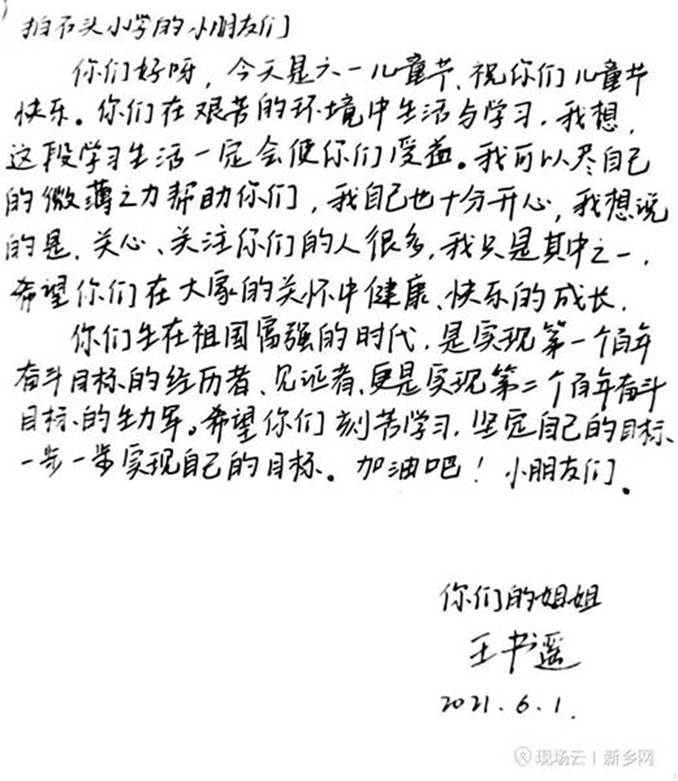 拍石头小学的小朋友们
你们好呀，今天是六一儿童节、祝你们儿童节
快乐。你们在艰苦的环境中生活与学习，我想，
这段学习生活一定会使你们受益。我可以尽自己
的微薄之力帮助你们，我自己也十分开心，我想说
的是，关心、关注你们的人很多，我只是其中之一，
希望你们在大家的关怀中健康、快乐的成长，
你们生在祖国富强的时代，是实现第一个百年
奋斗目标的经历者、见证者、更是实现第二个百年奋斗
目标的生力军。希望你们刻苦学习，坚定自己的目标、
一步一步实现自己的目标。加油吧！小朋友们。
你们的姐姐
王书遥
2021.6.1.
现场云｜新乡网